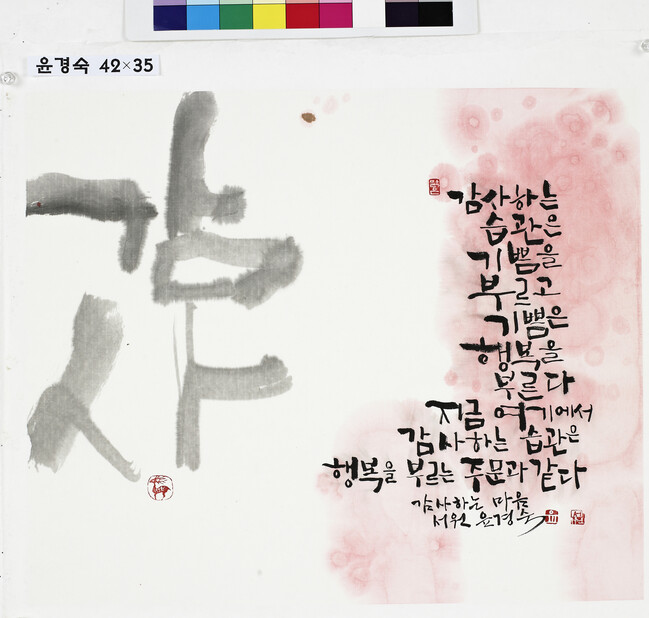 윤경숙 42×35
감사
감사하는
습관은
기쁨을
부르고
기쁨은
행복을
부른다
지금 여기에서
감사하는 습관은
행복을 부르는 주문과 같다
감사하는 마음
서원 윤경숙